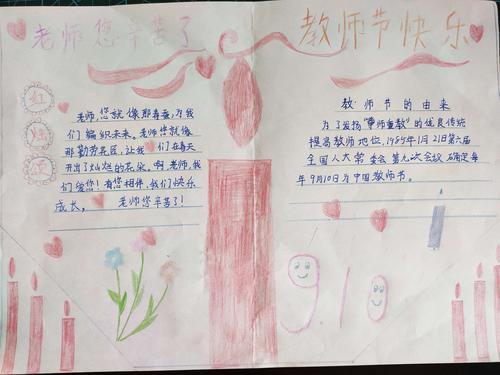 老师您辛苦了
教师节快乐
红
烛
老师,您就像那春蚕,为我
们编织未来。老师您就像
那勤劳花匠,让我们在春天
开出了灿烂的花朵。啊老师,我
们爱您!有您相伴,我们快乐
成长。 老师您辛苦了!
教师节的由来
为了发扬“尊师重教”的优良传统
提高教师地位,1985年1月21日第六届
全国人大常委会第九次会议确定每
年9月10日为中国教师节。
9.10